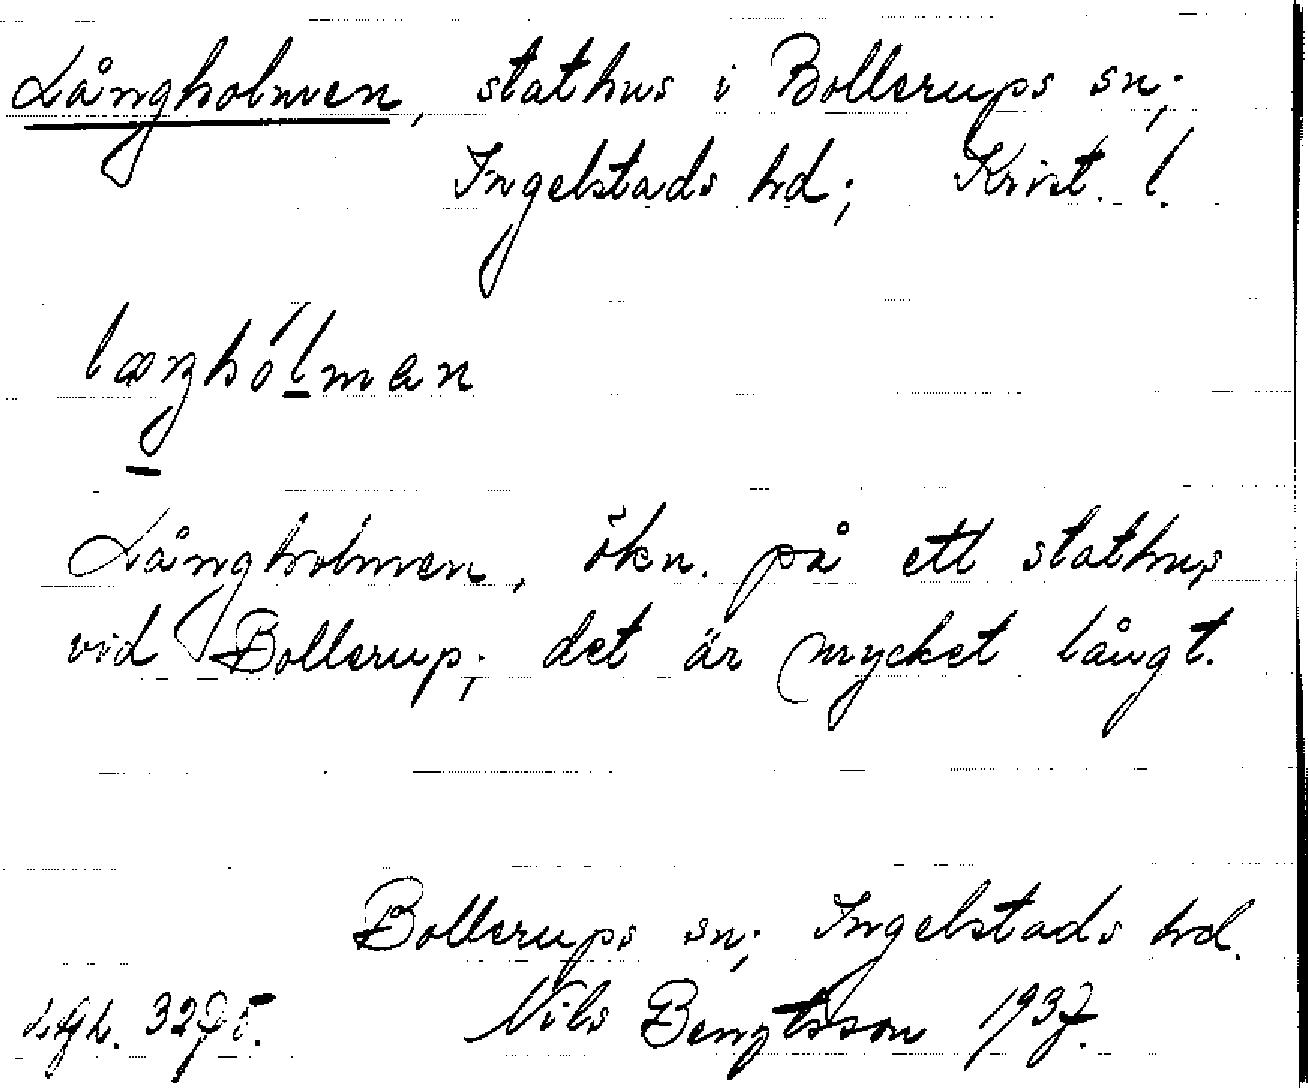 Långholmen, stathus i Bollerups sn;
Ingelstads hd; Krist. l.
Långholmen, ökn. på ett stathus
vid Bollerup; det är mycket långt.
Bollerups sn; Ingelstads hd.
Nils Bengtsson 1937.